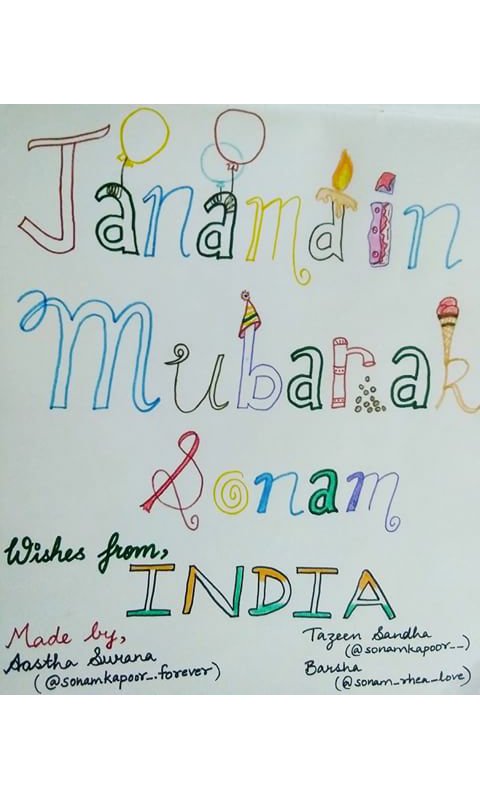 Janamdin
Mubarak
Sonam
Wishes from,
INDIA
Made by,
Aastha Surana
(@sonamkapoor_.forever)
Tazeen Sandha
(@sonamkapoor__)
Barsha
(@sonam_rhea_love)